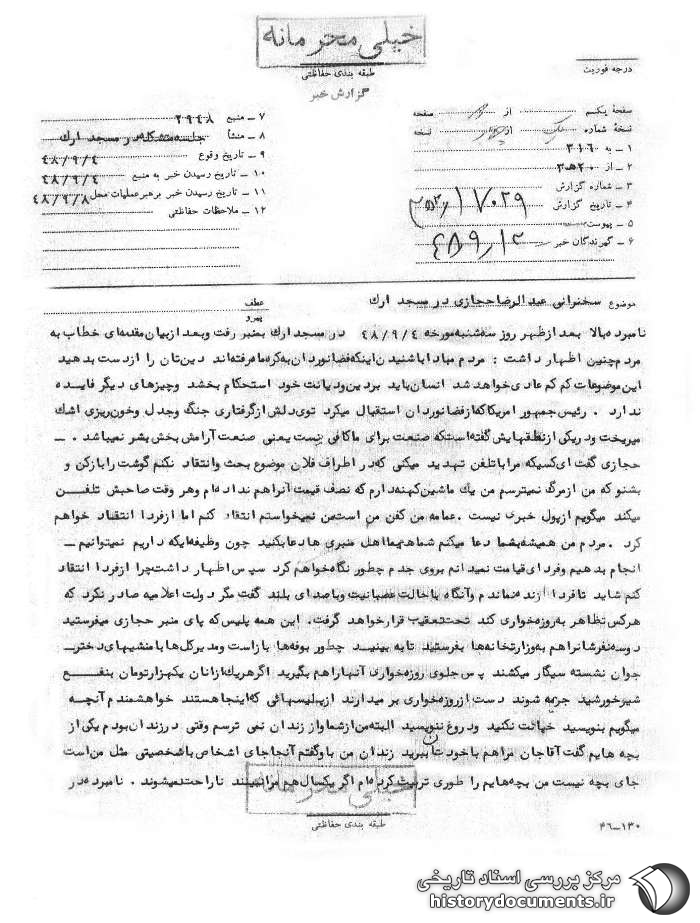 خیلی محرمانه
طبقه بندی حفاظتی
گزارش خبر
درجه فوریت
صفحه یکم از صفحه
نسخه شماره یک از نسخه
۱ ـ به ۳۱۶
۲ ـ از ۲۰ ه ۳
۳ ـ شماره گزارش
۴ ـ تاریخ گزارش
۵ ـ پیوست
۶ ـ گیرندگان خبر
۷ ـ منبع ۲۹۴۸
۸ ـ منشأ جلسه متشکله در مسجد ارک
۹ ـ تاریخ وقوع ۴۸/۹/۴
۱۰ ـ تاریخ رسیدن خبر به منبع ۴۸/۹/۴
۱۱ ـ تاریخ رسیدن خبر برهبر عملیات محل ۴۸/۹/۸
۱۲ ـ ملاحظات حفاظتی
موضوع سخنرانی عبدالرضا حجازی در مسجد ارک
عطف
پیرو
نامبرده بالا بعد از ظهر روز سه شنبه مورخه ۴۸/۹/۴ در مسجد ارک بمنبر رفت و بعد از بیان مقدمه ای خطاب به
مردم چنین اظهار داشت : مردم مبادا با شنیدن اینکه فضانوردان به کره ماه رفته اند دین تان را از دست بدهید
این موضوعات کم کم عادی خواهد شد انسان باید بردین و دیانت خود استحکام بخشد و چیزهای دیگر فایده
ندارد . رئیس جمهور امریکا که از فضانوردان استقبال میکرد توی دلش از گرفتاری جنگ وجدل وخون ریزی اشک
میریخت و در یکی از نطقهایش گفته است که صنعت برای ما کافی نیست یعنی صنعت آرامش بخش بشر نمیباشد . ـ
حجازی گفت ای کسیکه مرا با تلفن تهدید میکنی که در اطراف فلان موضوع بحث وانتقاد نکنم گوشت را باز کن و
بشنو که من از مرگ نمیترسم من یک ماشین کهنه دارم که نصف قیمت آنرا هم نداده ام وهر وقت صاحبش تلفن
میکند میگویم از پول خبری نیست . عمامه من کفن من است من نمیخواستم انتقاد کنم اما از فردا انتقاد خواهم
کرد . مردم من همیشه بشما دعا میکنم شما هم بما اهل منبری ها دعا بکنید چون وظیفه ایکه داریم نمیتوانیم ـ
انجام بدهیم وفردای قیامت نمیدانم بروی جدم چطور نگاه خواهم کرد سپس اظهار داشت چرا از فردا انتقاد
کنم شاید تا فردا زنده نماندم وآنگاه با حالت عصبانیت وبا صدای بلند گفت مگر دولت اعلامیه صادر نکرد که
هر کس تظاهر به روزه خواری کند تحت تعقیب قرار خواهد گرفت. این همه پلیس که پای منبر حجازی میفرستید
دو سه نفرشانرا هم به وزارتخانه ها بفرستید تا به بینید چطور بوفه ها باز است ومدیر کل ها با منشیهای دختر ـ
جوان نشسته سیگار میکشند پس جلوی روزه خواری آنها را هم بگیرید اگر هر یک از آنان یکهزار تومان بنفع
شیر خورشید جریمه شوند دست از روزه خواری بر میدارند از پلیسهائی که اینجا هستند خواهشمندم آنچه
میگویم بنویسید خیانت نکنید ودروغ ننویسید البته من از شما واز زندان نمی ترسم وقتی در زندان بودم یکی از
بچه هایم گفت آقاجان مرا هم با خودتان ببرید زندان من باو گفتم آنجا جای اشخاص با شخصیتی مثل من است
جای بچه نیست من بچه هایم را طوری تربیت کرده ام اگر یکسال هم مرا نبینند ناراحت نمیشوند . نامبرده در
خیلی محرمانه
طبقه بندی حفاظتی
۴۶ـ۱۳۰
مرکز بررسی اسناد تاریخی
historydocuments.ir